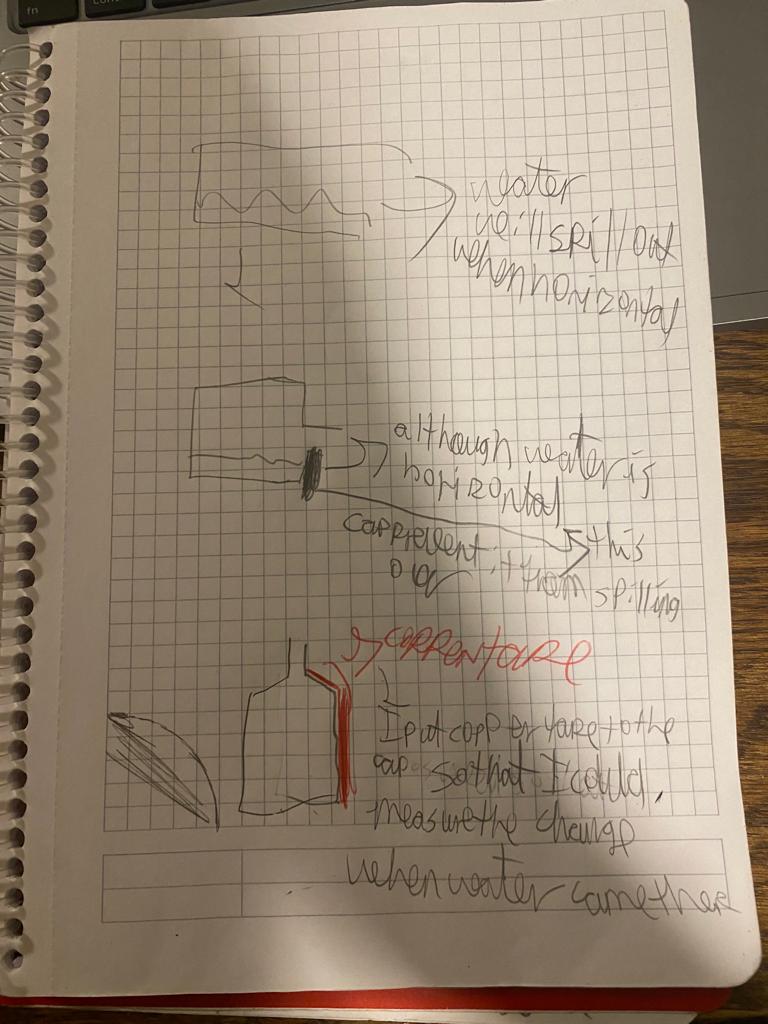 water
will spill out
when horizontal
although water is
horizontal
cap prevent it from spilling
this
copper tape
I put copper tape to the
cap so that I could
measure the change
when water came there